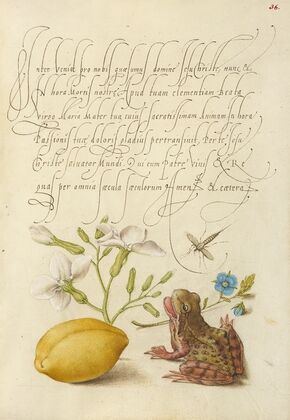 36.
nter veniat pro nobis quæsumus domine Jesu Christe, nunc &
hora Mortis nostræ, apud tuam clementiam Beata
virgo Maria Mater tua cuius sacratissimam Animam in hora
Passionis tuæ doloris gladius pertransivit. Per te Jesu
Christe salvator Mundi. Qui cum Patre vivis & Re
per omnia sæcula sæculorum Amen. & cætera